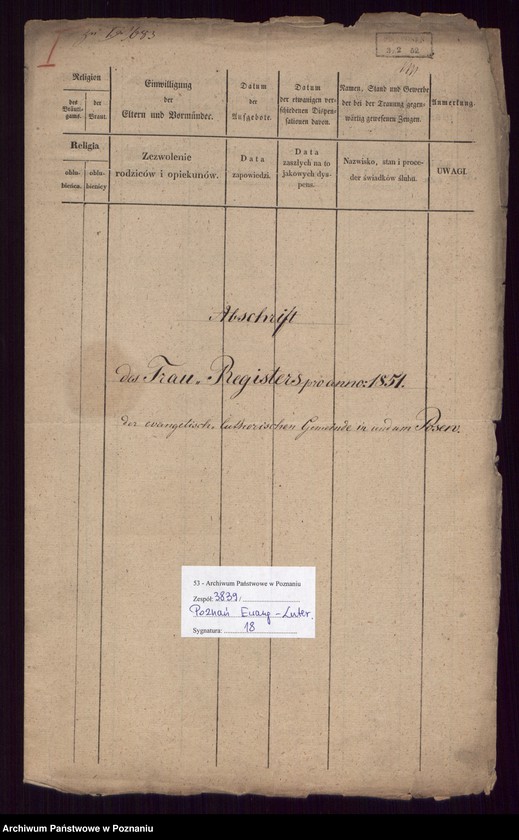 Religion
des Bräutigams.
der Braut.
Einwilligung
der
Eltern und Vormünder.
Datum
der
Aufgebote.
Datum
der etwanigen verschiedenen Dispensationen davon.
Namen, Stand und Gewerbe
der bei der Trauung gegenwärtig gewesenen Zeugen.
Anmerkung.
Religia
oblubienca.
oblubienicy
Zezwolenie
rodziców i opiekunów.
Data
zapowiedzi.
Data
zaszłych na to
jakowych dyspens.
Nazwisko, stan i proceder świadków ślubu.
UWAGI.
Abschrift
des Trau-Registers pro anno: 1851.
der evangelisch-lutherischen Gemeinde in und um Posen.
53 - Archiwum Państwowe w Poznaniu
Zespół: 3839/
Poznań Ewang-Luter.
Sygnatura: 18
Archiwum Państwowe w Poznaniu